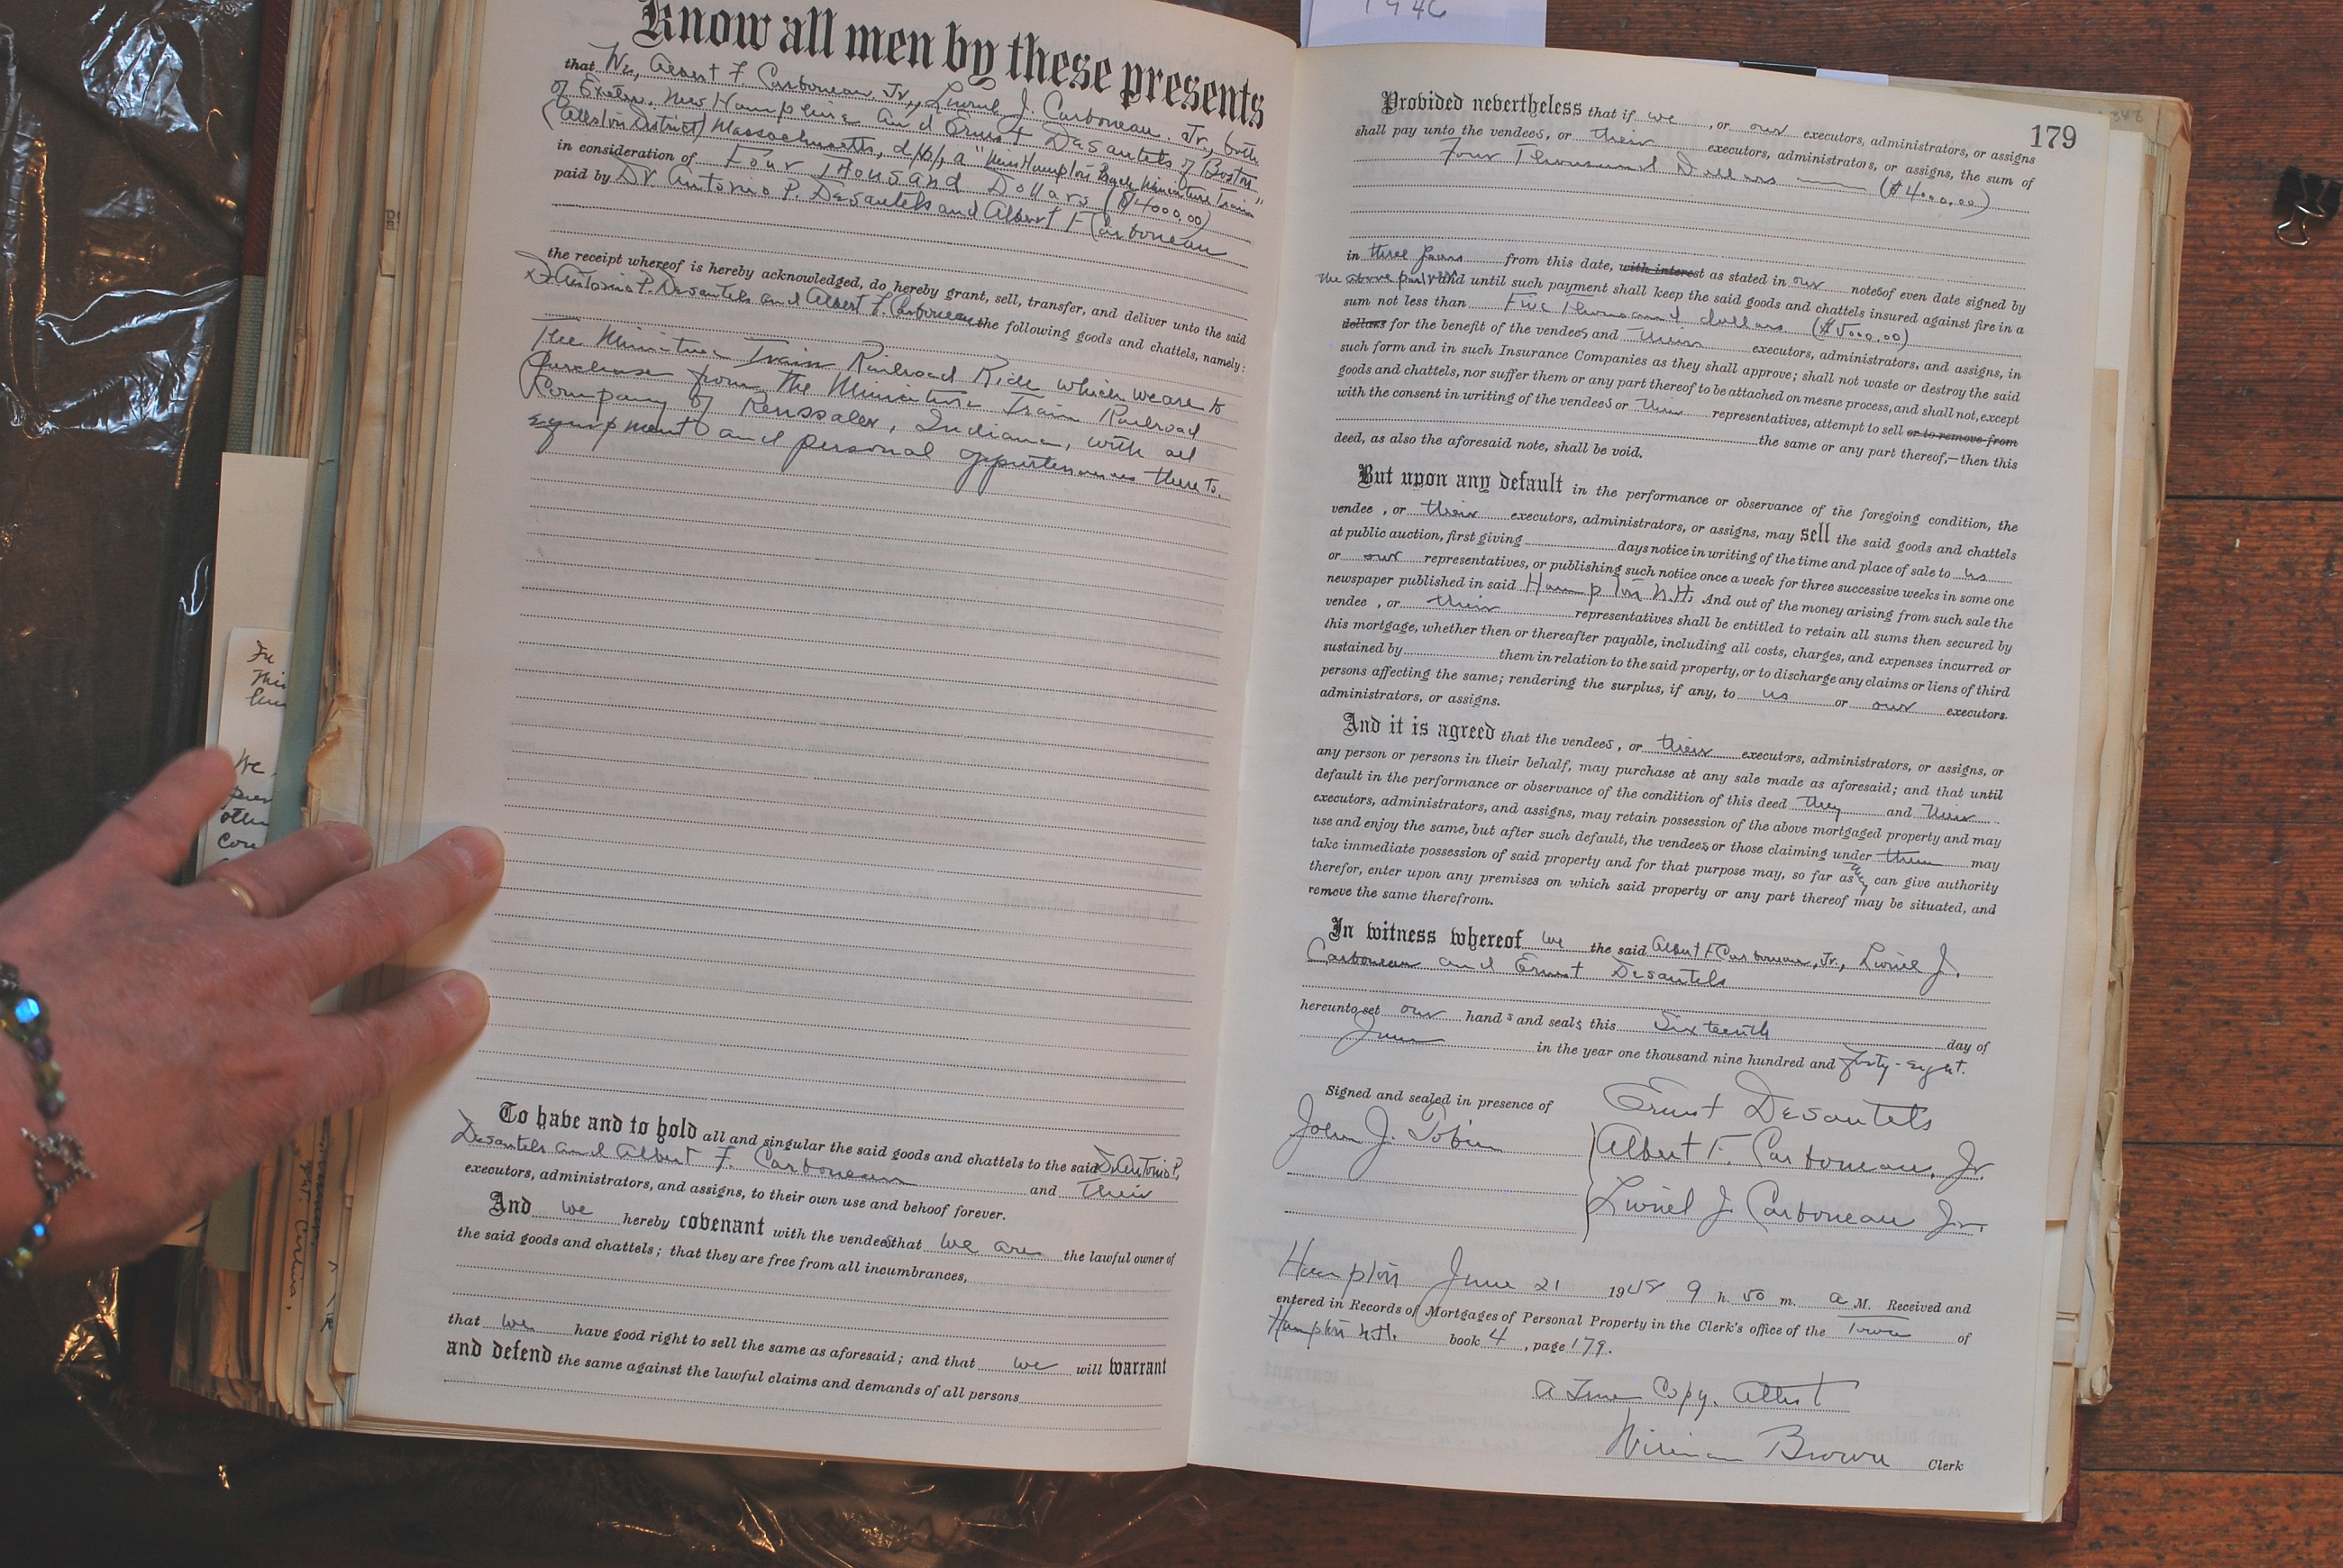 1946
Know all men by these presents
that We, Albert F. Carboneau Jr., Lionel J. Carboneau Jr., both
of Exeter, New Hampshire and Ernest Desautels of Boston
(Allston District) Massachusetts, d/b/a "Hampton Beach Miniature Train"
in consideration of Four Thousand Dollars ($4000.00)
paid by Dr. Antonio P. Desautels and Albert F. Carboneau
the receipt whereof is hereby acknowledged, do hereby grant, sell, transfer, and deliver unto the said
Dr. Antonio P. Desautels and Albert F. Carboneau the following goods and chattels, namely:
The Miniature Train Railroad Ride which we are to
purchase from the Miniature Train Railroad
Company of Renssaler, Indiana, with all
equipment and personal appurtenances thereto.
To have and to hold all and singular the said goods and chattels to the said Dr. Antonio P.
Desautels and Albert F. Carboneau and their
executors, administrators, and assigns, to their own use and behoof forever.
And we hereby covenant with the vendees that we are the lawful owner of
the said goods and chattels; that they are free from all incumbrances,
that we have good right to sell the same as aforesaid; and that we will warrant
and defend the same against the lawful claims and demands of all persons
179
Provided nevertheless that if we, or our executors, administrators, or assigns
shall pay unto the vendees, or their executors, administrators, or assigns, the sum of
Four Thousand Dollars ($4000.00)
in three years from this date, with interest as stated in our notes of even date signed by
the above parties and until such payment shall keep the said goods and chattels insured against fire in a
sum not less than Five Thousand dollars ($5000.00)
dollars for the benefit of the vendees and their executors, administrators, and assigns, in
such form and in such Insurance Companies as they shall approve; shall not waste or destroy the said
goods and chattels, nor suffer them or any part thereof to be attached on mesne process, and shall not, except
with the consent in writing of the vendees or their representatives, attempt to sell or to remove from
the same or any part thereof,—then this
deed, as also the aforesaid note, shall be void.
But upon any default in the performance or observance of the foregoing condition, the
vendee, or their executors, administrators, or assigns, may sell the said goods and chattels
at public auction, first giving days notice in writing of the time and place of sale to us
or our representatives, or publishing such notice once a week for three successive weeks in some one
newspaper published in said Hampton N.H. And out of the money arising from such sale the
vendee, or their representatives shall be entitled to retain all sums then secured by
this mortgage, whether then or thereafter payable, including all costs, charges, and expenses incurred or
sustained by them in relation to the said property, or to discharge any claims or liens of third
persons affecting the same; rendering the surplus, if any, to us or our executors.
administrators, or assigns.
And it is agreed that the vendees, or their executors, administrators, or assigns, or
any person or persons in their behalf, may purchase at any sale made as aforesaid; and that until
default in the performance or observance of the condition of this deed they and their
executors, administrators, and assigns, may retain possession of the above mortgaged property and may
use and enjoy the same, but after such default, the vendees or those claiming under them may
take immediate possession of said property and for that purpose may, so far as they can give authority
therefor, enter upon any premises on which said property or any part thereof may be situated, and
remove the same therefrom.
In witness whereof we the said Albert F. Carboneau, Jr., Lionel J.
Carboneau and Ernest Desautels
hereunto set our hands and seals this Sixteenth day of
June in the year one thousand nine hundred and forty-eight.
Signed and sealed in presence of
Ernest Desautels
John J. Tobin Albert F. Carboneau, Jr.
Lionel J. Carboneau Jr.
Hampton June 21 1948 9 h. 50 m. A M. Received and
entered in Records of Mortgages of Personal Property in the Clerk's office of the Town of
Hampton N.H. book 4, page 179.
A True Copy. Attest
William Brown Clerk